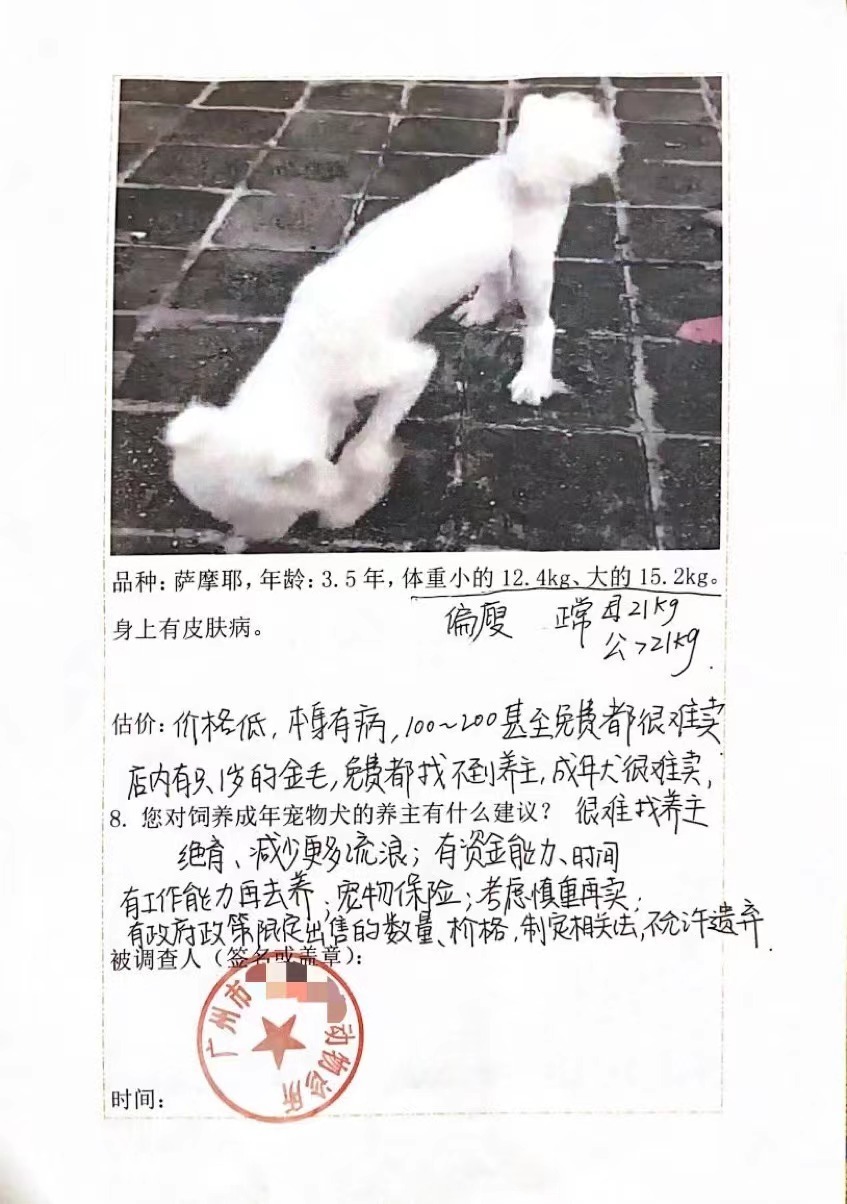 品种：萨摩耶，年龄：3.5年，体重小的12.4kg、大的15.2kg。
身上有皮肤病。
偏瘦 正常 母21kg
公>21kg.
估价：价格低，本身有病，100~200甚至免费都很难卖
店内有只1岁的金毛，免费都找不到养主，成年犬很难卖，
8. 您对饲养成年宠物犬的养主有什么建议？ 很难找养主
绝育、减少更多流浪；有资金能力、时间
有工作能力再去养；宠物保险；考虑慎重再买；
有政府政策限定出售的数量、价格，制定相关法，不允许遗弃.
被调查人（签名或盖章）：
广州市
动物诊所
时间：